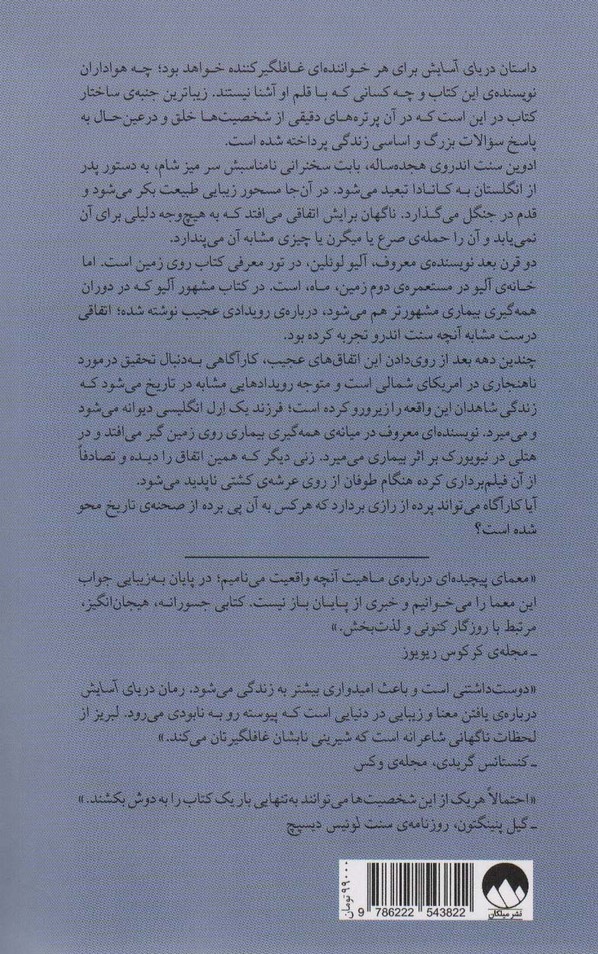 داستان دریای آسایش برای هر خواننده‌ای غافلگیرکننده خواهد بود؛ چه هواداران
نویسنده‌ی این کتاب و چه کسانی که با قلم او آشنا نیستند. زیباترین جنبه‌ی ساختار
کتاب در این است که در آن پرتره‌های دقیقی از شخصیت‌ها خلق و درعین‌حال به
پاسخ سؤالات بزرگ و اساسی زندگی پرداخته شده است.
ادوین سنت اندروی هجده‌ساله، بابت سخنرانی نامناسبش سر میز شام، به دستور پدر
از انگلستان به کانادا تبعید می‌شود. در آن‌جا مسحور زیبایی طبیعت بکر می‌شود و
قدم در جنگل می‌گذارد. ناگهان برایش اتفاقی می‌افتد که به هیچ‌وجه دلیلی برای آن
نمی‌یابد و آن را حمله‌ی صرع یا میگرن یا چیزی مشابه آن می‌پندارد.
دو قرن بعد نویسنده‌ی معروف، آلیو لوئلین، در تور معرفی کتاب روی زمین است. اما
خانه‌ی آلیو در مستعمره‌ی دوم زمین، ماه، است. در کتاب مشهور آلیو که در دوران
همه‌گیری بیماری مشهورتر هم می‌شود، درباره‌ی رویدادی عجیب نوشته شده؛ اتفاقی
درست مشابه آنچه سنت اندرو تجربه کرده بود.
چندین دهه بعد از روی‌دادن این اتفاق‌های عجیب، کارآگاهی به‌دنبال تحقیق درمورد
ناهنجاری در امریکای شمالی است و متوجه رویدادهایی مشابه در تاریخ می‌شود که
زندگی شاهدان این واقعه را زیرورو کرده است؛ فرزند یک اِرل انگلیسی دیوانه می‌شود
و می‌میرد. نویسنده‌ای معروف در میانه‌ی همه‌گیری بیماری روی زمین گیر می‌افتد و در
هتلی در نیویورک بر اثر بیماری می‌میرد. زنی دیگر که همین اتفاق را دیده و تصادفاً
از آن فیلم‌برداری کرده هنگام طوفان از روی عرشه‌ی کشتی ناپدید می‌شود.
آیا کارآگاه می‌تواند پرده از رازی بردارد که هرکس به آن پی برده از صحنه‌ی تاریخ محو
شده است؟
«معمای پیچیده‌ای درباره‌ی ماهیت آنچه واقعیت می‌نامیم؛ در پایان به‌زیبایی جواب
این معما را می‌خوانیم و خبری از پایان باز نیست. کتابی جسورانه، هیجان‌انگیز،
مرتبط با روزگار کنونی و لذت‌بخش.»
ـ مجله‌ی کرکوس ریویوز
«دوست‌داشتنی است و باعث امیدواری بیشتر به زندگی می‌شود. رمان دریای آسایش
درباره‌ی یافتن معنا و زیبایی در دنیایی است که پیوسته رو به نابودی می‌رود. لبریز از
لحظات ناگهانی شاعرانه است که شیرینی نابشان غافلگیرتان می‌کند.»
ـ کنستانس گریدی، مجله‌ی وکس
«احتمالاً هریک از این شخصیت‌ها می‌توانند به‌تنهایی بار یک کتاب را به دوش بکشند.»
ـ گیل پنینگتون، روزنامه‌ی سنت لوئیس دیسپچ
۹۹۰۰۰ تومان
9 786222 543822
نشر میلکان